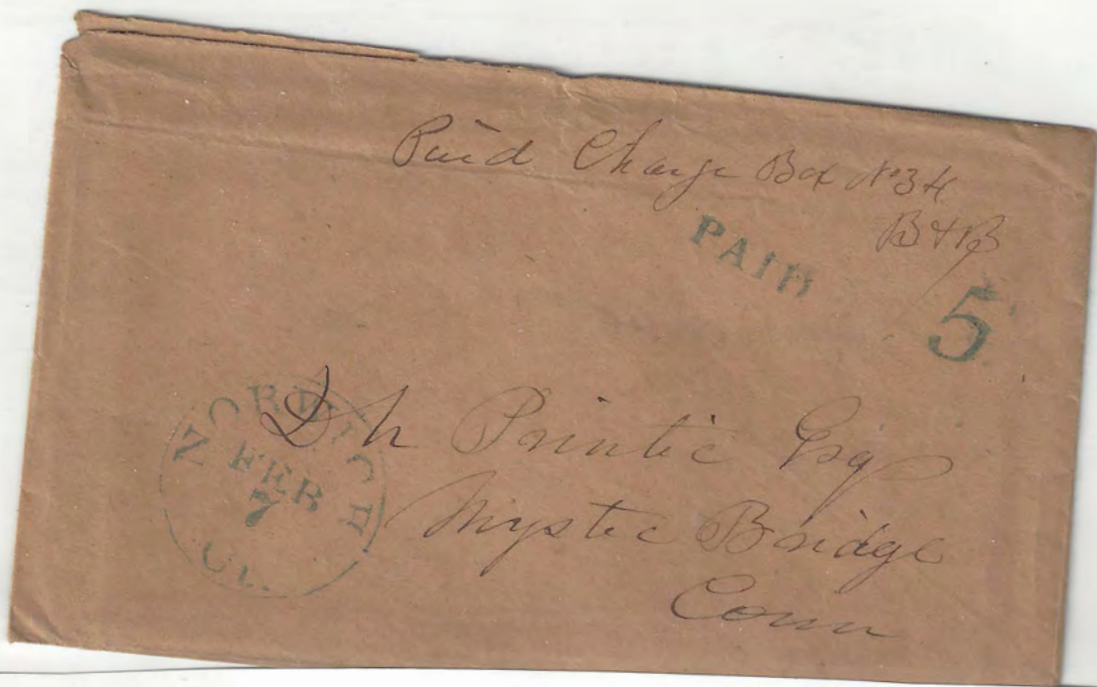 Paid Charge Box No 34
B & B
PAID
5
NORWICH
FEB
7
CT.
D h Printic Esq
Mystic Bridge
Conn